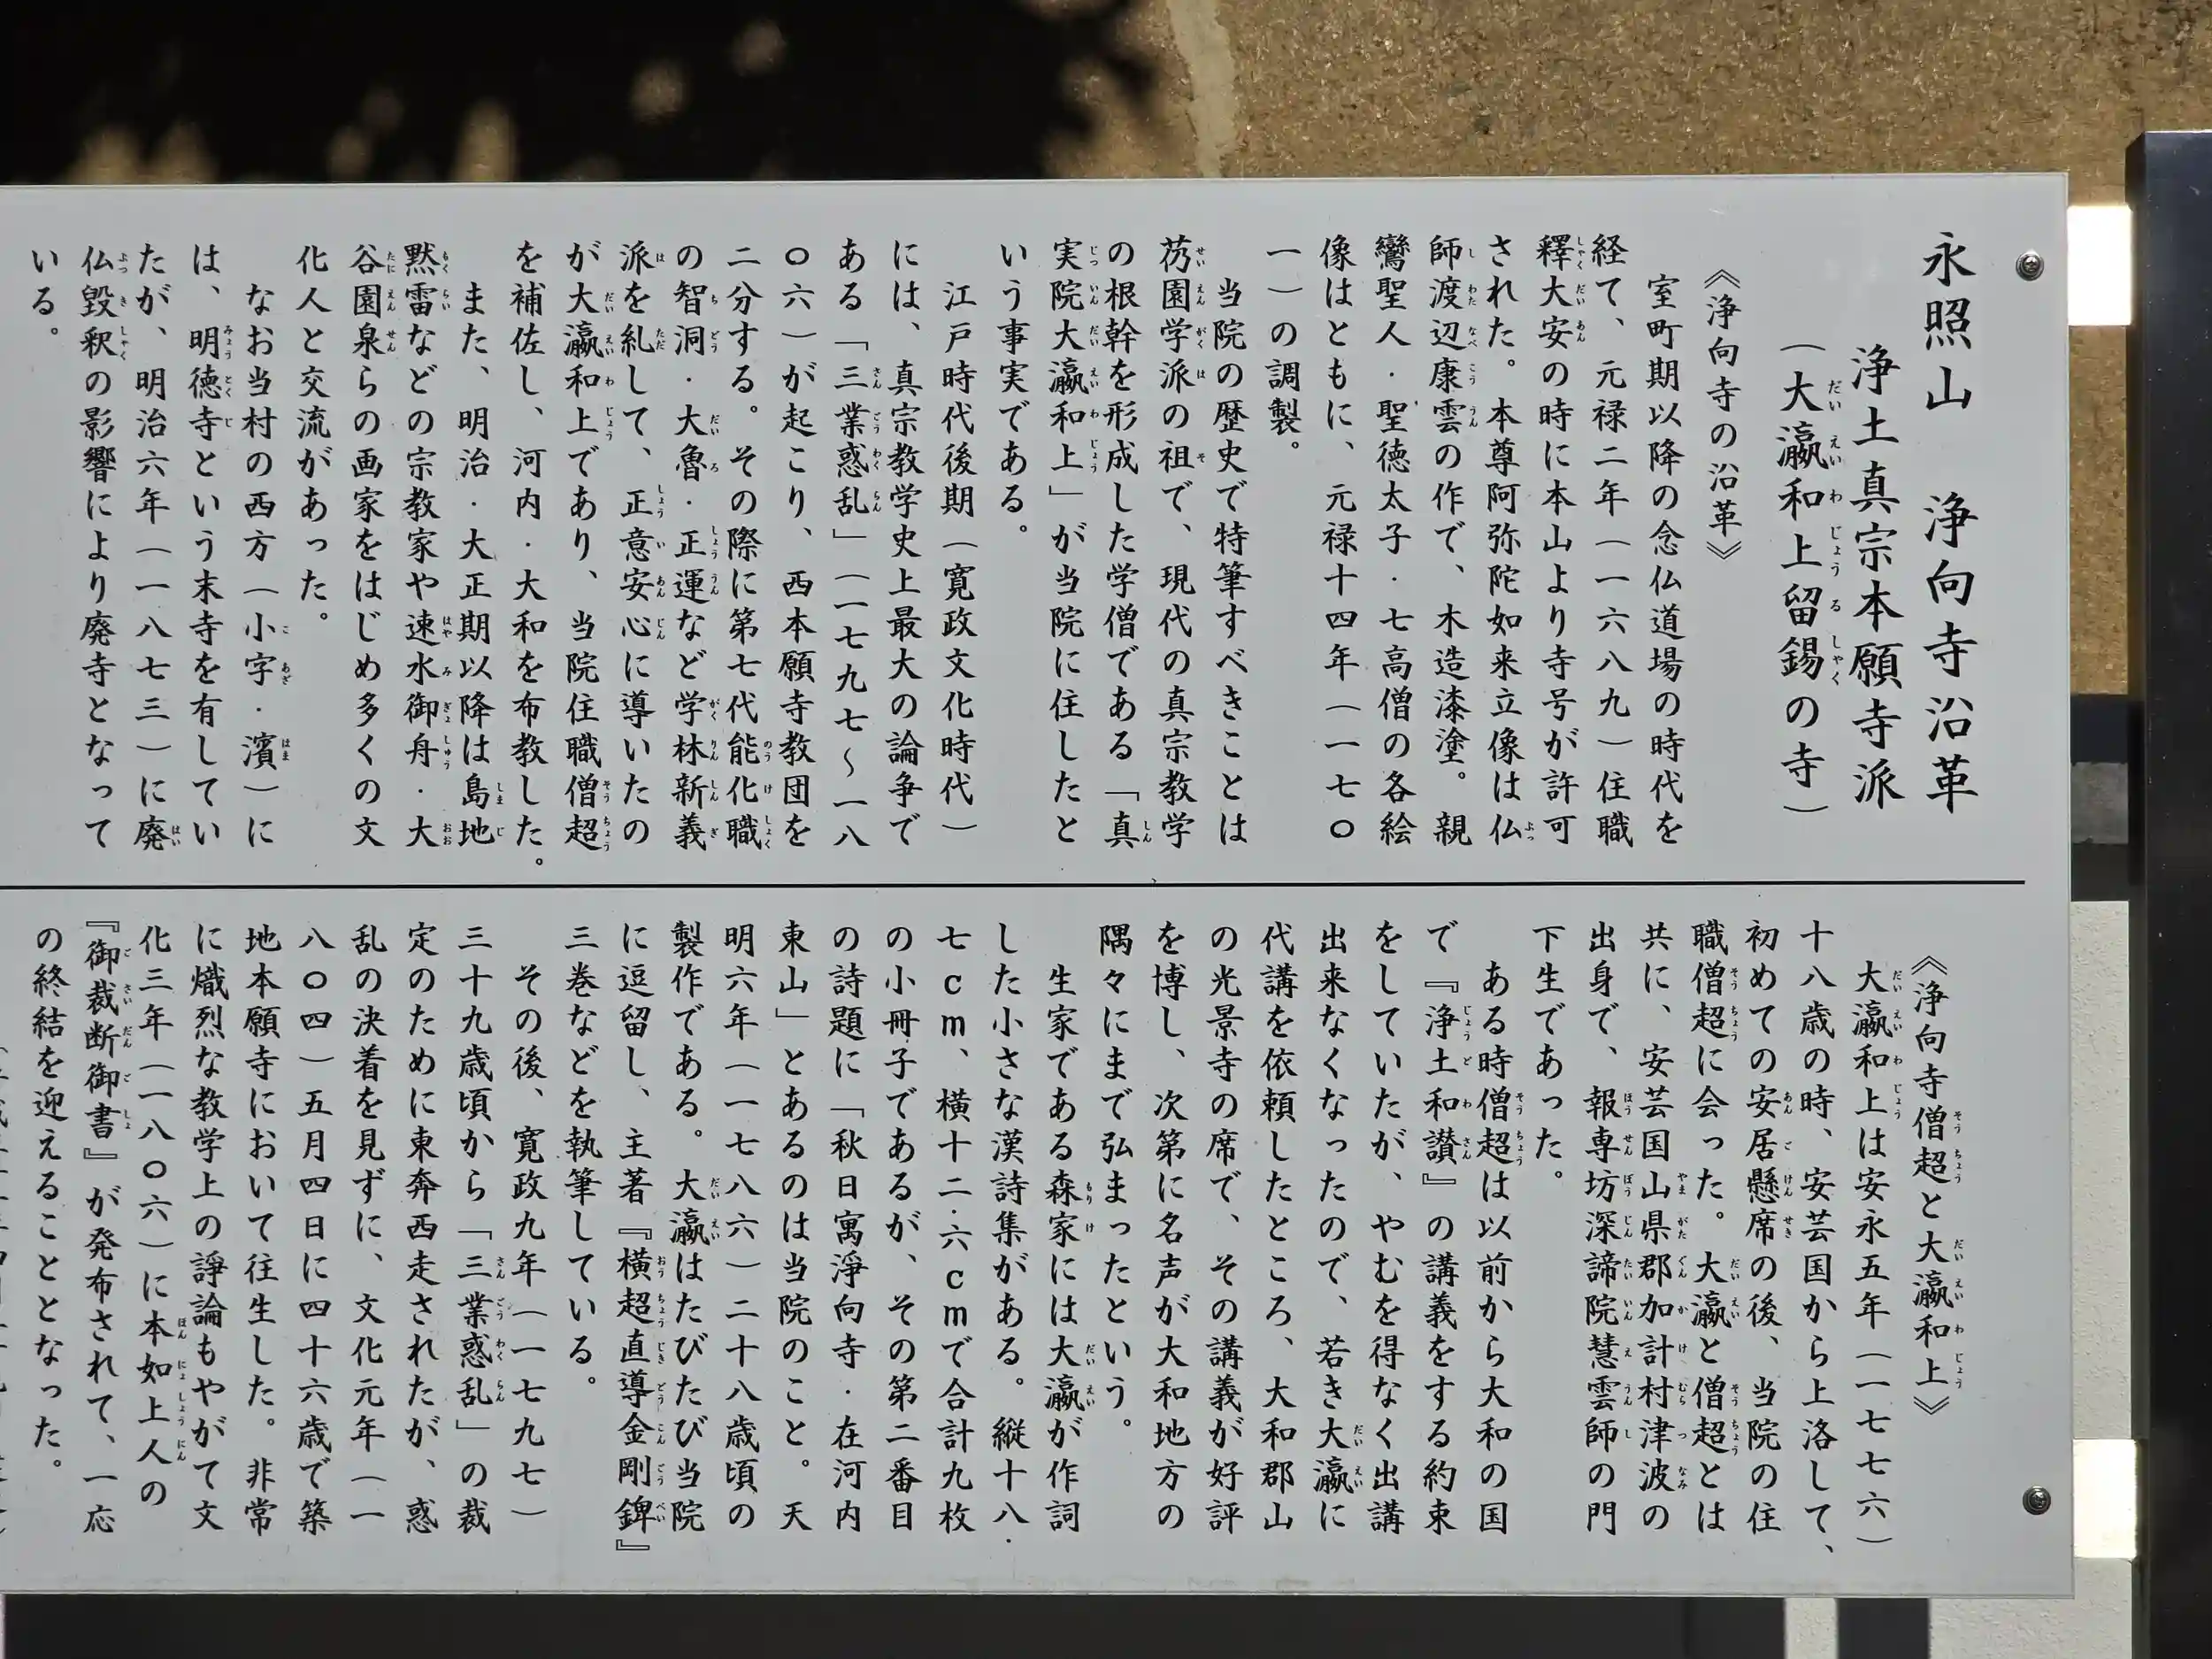 永照山　浄向寺沿革
浄土真宗本願寺派
（大瀛和上留錫の寺）
《浄向寺の沿革》
室町期以降の念仏道場の時代を
経て、元禄二年（一六八九）住職
釋大安の時に本山より寺号が許可
された。本尊阿弥陀如来立像は仏
師渡辺康雲の作で、木造漆塗。親
鸞聖人・聖徳太子・七高僧の各絵
像はともに、元禄十四年（一七〇
一）の調製。
当院の歴史で特筆すべきことは
芿園学派の祖で、現代の真宗教学
の根幹を形成した学僧である「真
実院大瀛和上」が当院に住したと
いう事実である。
江戸時代後期（寛政文化時代）
には、真宗教学史上最大の論争で
ある「三業惑乱」（一七九七〜一八
〇六）が起こり、西本願寺教団を
二分する。その際に第七代能化職
の智洞・大魯・正運など学林新義
派を糺して、正意安心に導いたの
が大瀛和上であり、当院住職僧超
を補佐し、河内・大和を布教した。
また、明治・大正期以降は島地
黙雷などの宗教家や速水御舟・大
谷園泉らの画家をはじめ多くの文
化人と交流があった。
なお当村の西方（小字・濱）に
は、明徳寺という末寺を有してい
たが、明治六年（一八七三）に廃
仏毀釈の影響により廃寺となって
いる。
《浄向寺僧超と大瀛和上》
大瀛和上は安永五年（一七七六）
十八歳の時、安芸国から上洛して、
初めての安居懸席の後、当院の住
職僧超に会った。大瀛と僧超とは
共に、安芸国山県郡加計村津波の
出身で、報専坊深諦院慧雲師の門
下生であった。
ある時僧超は以前から大和の国
で『浄土和讃』の講義をする約束
をしていたが、やむを得なく出講
出来なくなったので、若き大瀛に
代講を依頼したところ、大和郡山
の光景寺の席で、その講義が好評
を博し、次第に名声が大和地方の
隅々にまで弘まったという。
生家である森家には大瀛が作詞
した小さな漢詩集がある。縦十八・
七cm、横十二・六cmで合計九枚
の小冊子であるが、その第二番目
の詩題に「秋日寓淨向寺・在河内
東山」とあるのは当院のこと。天
明六年（一七八六）二十八歳頃の
製作である。大瀛はたびたび当院
に逗留し、主著『横超直導金剛錍』
三巻などを執筆している。
その後、寛政九年（一七九七）
三十九歳頃から「三業惑乱」の裁
定のために東奔西走されたが、惑
乱の決着を見ずに、文化元年（一
八〇四）五月四日に四十六歳で築
地本願寺において往生した。非常
に熾烈な教学上の諍論もやがて文
化三年（一八〇六）に本如上人の
『御裁断御書』が発布されて、一応
の終結を迎えることとなった。